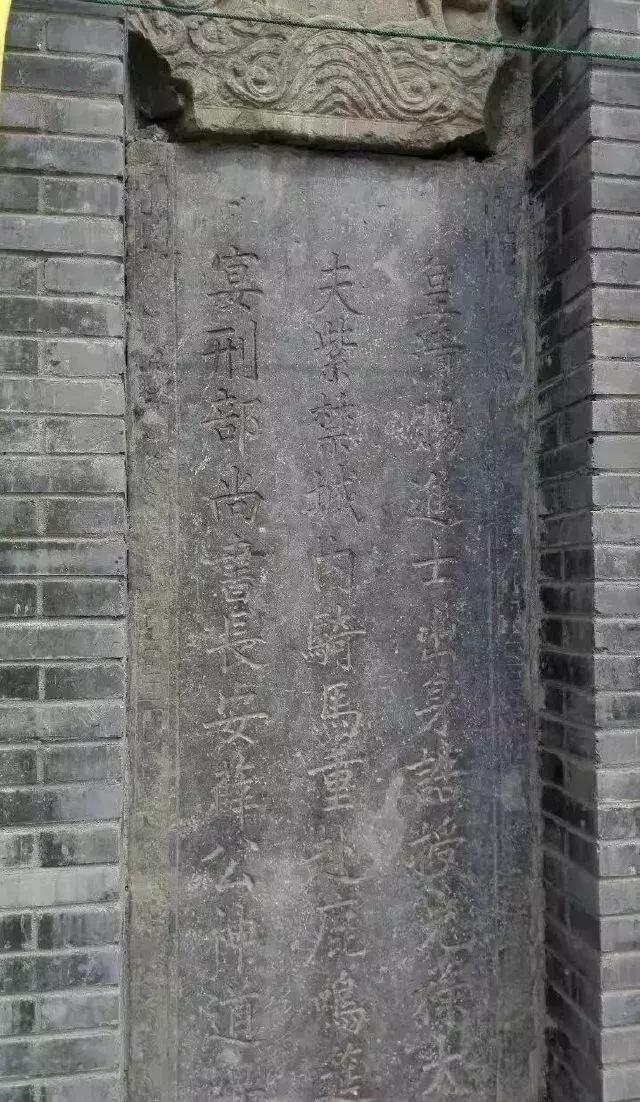 皇賜進士出身誥授光祿大
夫紫禁城內騎馬重赴鹿鳴筵
宴刑部尚書長安薛公神道